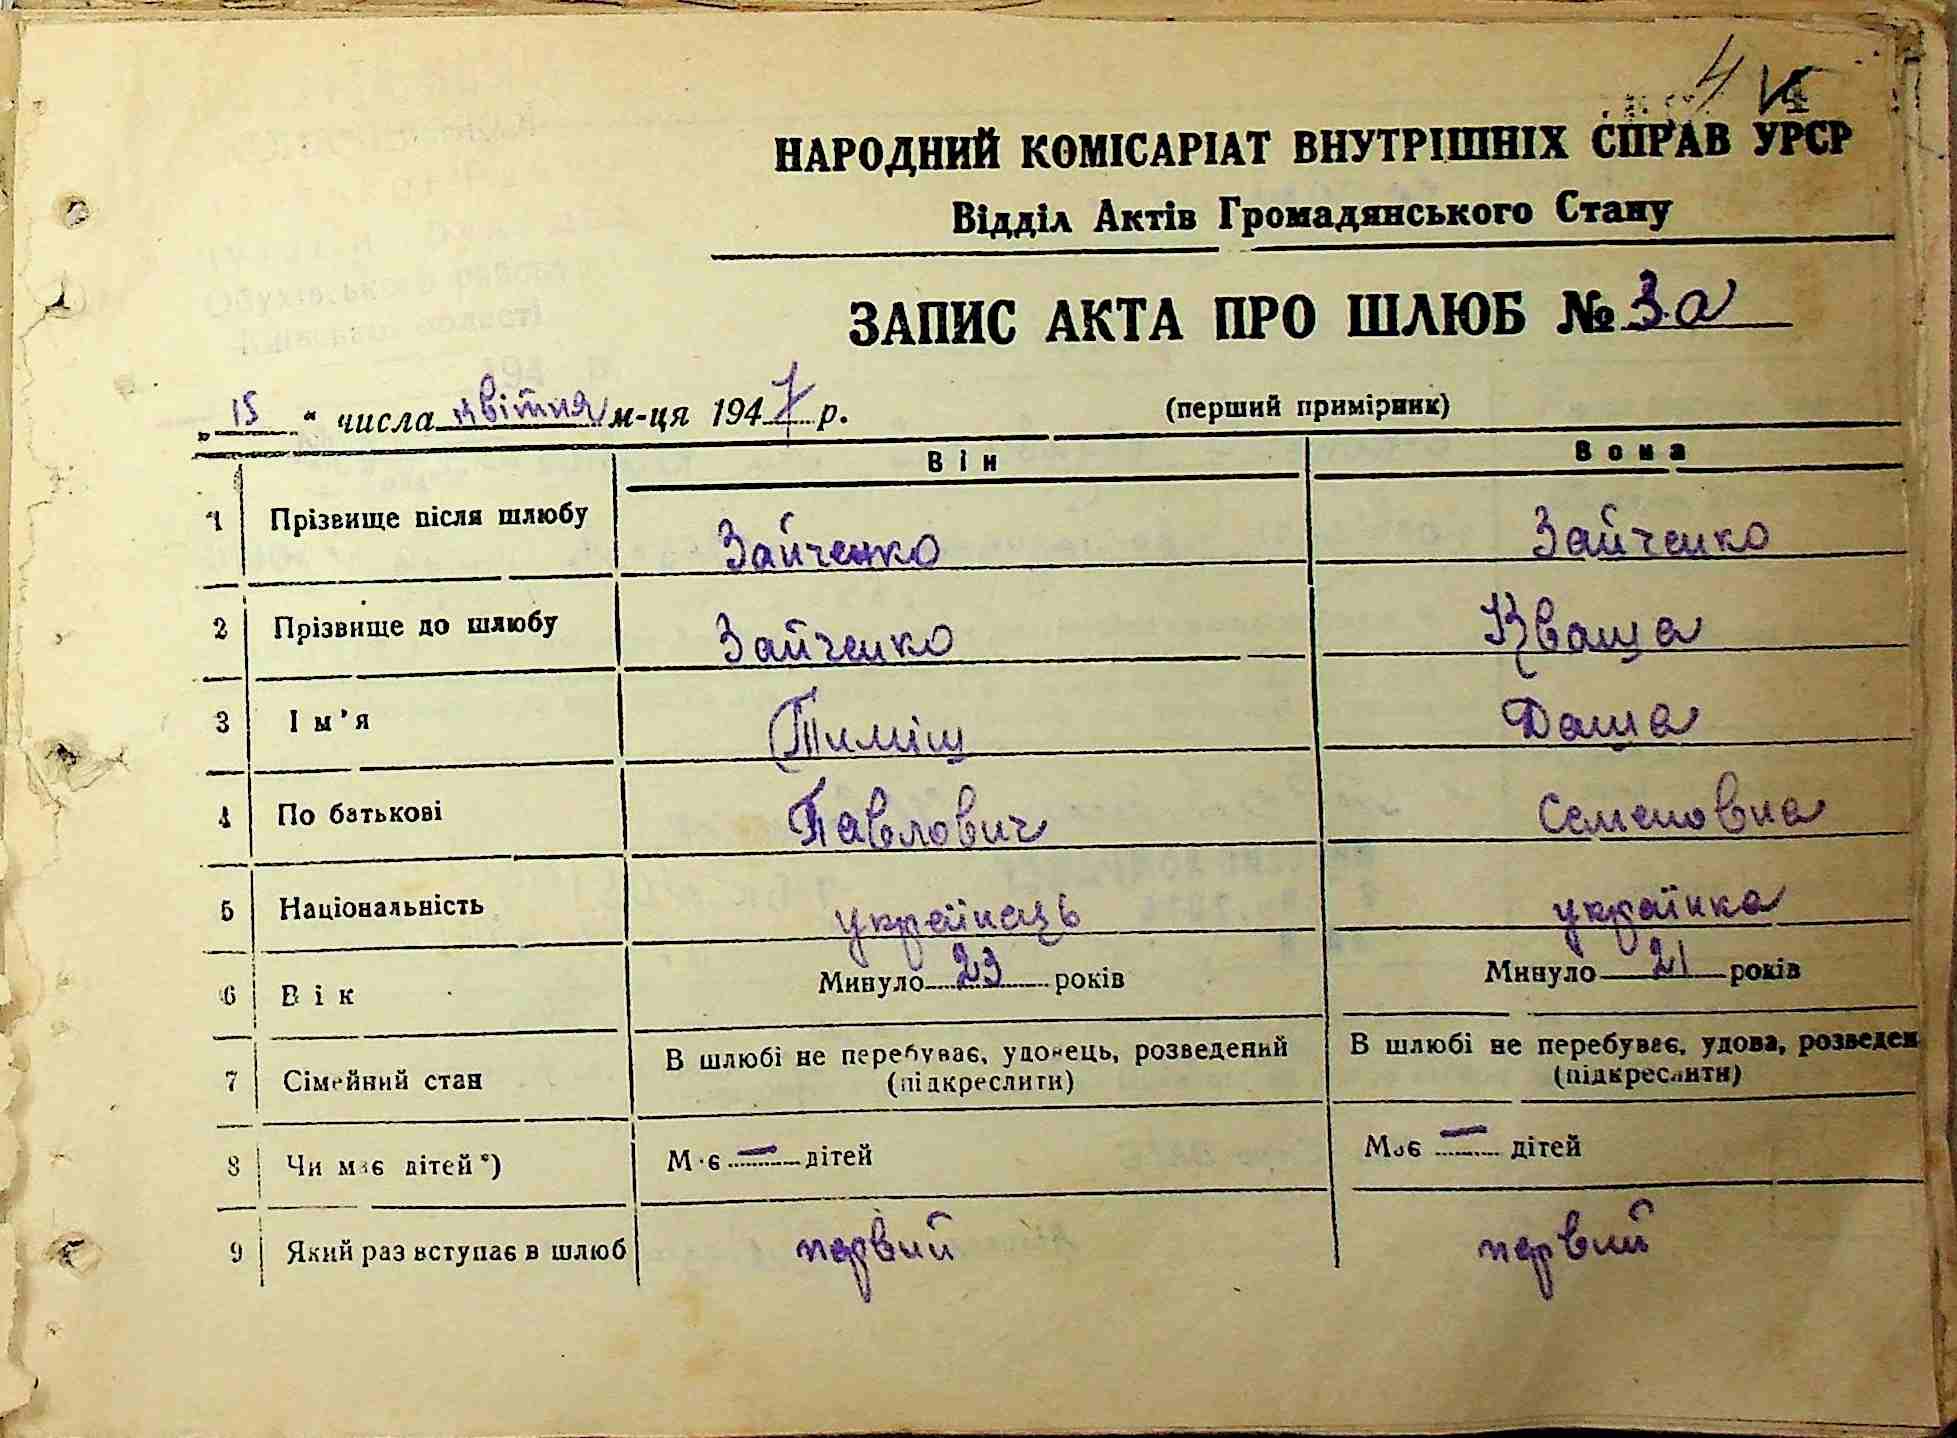 4
НАРОДНИЙ КОМІСАРІАТ ВНУТРІШНІХ СПРАВ УРСР
Відділ Актів Громадянського Стану
ЗАПИС АКТА ПРО ШЛЮБ № 3а
„ 15 “ числа квітня м-ця 1947 р. (перший примірник)
Він Вона
1 Прізвище після шлюбу Зайченко Зайченко
2 Прізвище до шлюбу Зайченко Кваша
3 Ім'я Тиміш Даша
4 По батькові Павлович Семеновна
5 Національність українець українка
6 Вік Минуло 23 років Минуло 21 років
7 Сімейний стан В шлюбі не перебуває, удовець, розведений (підкреслити) В шлюбі не перебуває, удова, розведен (підкреслити)
8 Чи має дітей*) Має — дітей Має — дітей
9 Який раз вступає в шлюб первий первий